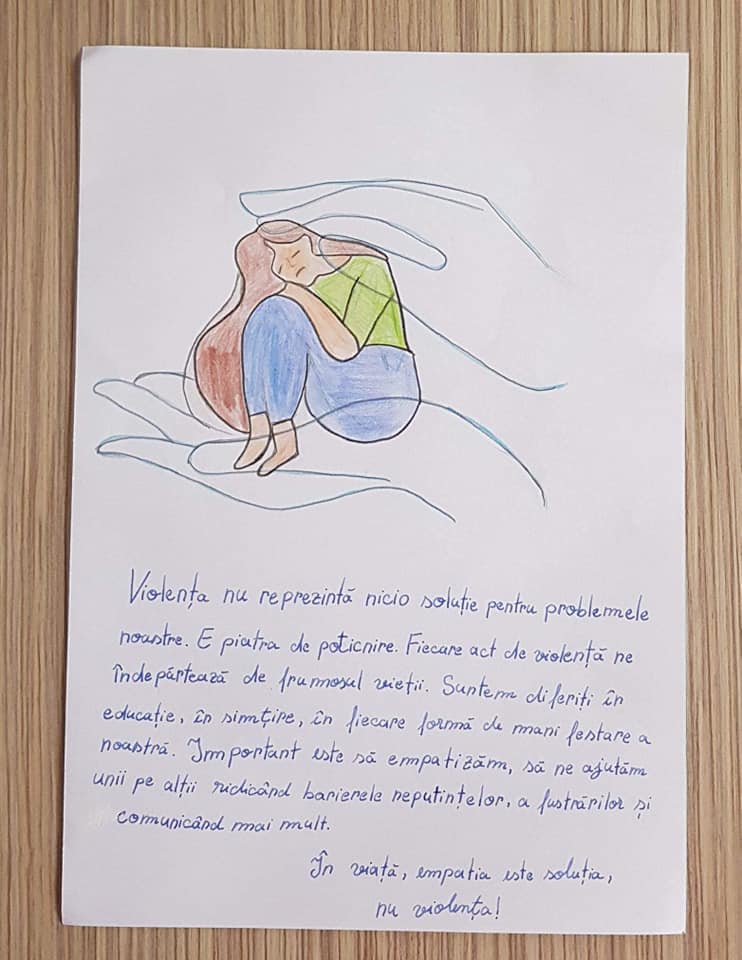 Violența nu reprezintă nicio soluție pentru problemele
noastre. E piatra de poticnire. Fiecare act de violență ne
îndepărtează de frumosul vieții. Suntem diferiți în
educație, în simțire, în fiecare formă de mani festare a
noastră. Important este să empatizăm, să ne ajutăm
unii pe alții ridicând barierele neputințelor, a fustrărilor și
comunicând mai mult.
În viață, empatia este soluția,
nu violența!